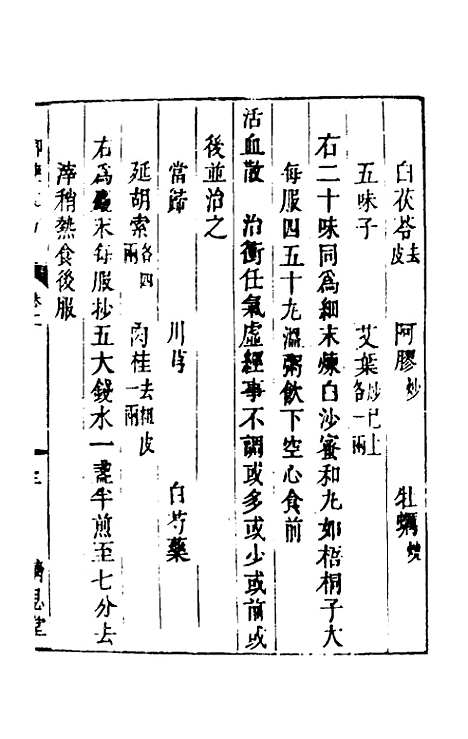 白茯苓去皮 阿膠炒 牡蠣煅
五味子 艾葉炒已上各一兩
右二十味同為細末煉白沙蜜和九如梧桐子大
每服四五十九溫粥飲下空心食前
活血散 治衝任氣虛經事不調或多或少或前或
後並治之
當歸 川芎 白芍藥
延胡索各四兩 肉桂去粗皮一兩
右為麄末每服抄五大錢水一盞半煎至七分去
滓稍熱食後服
卷十